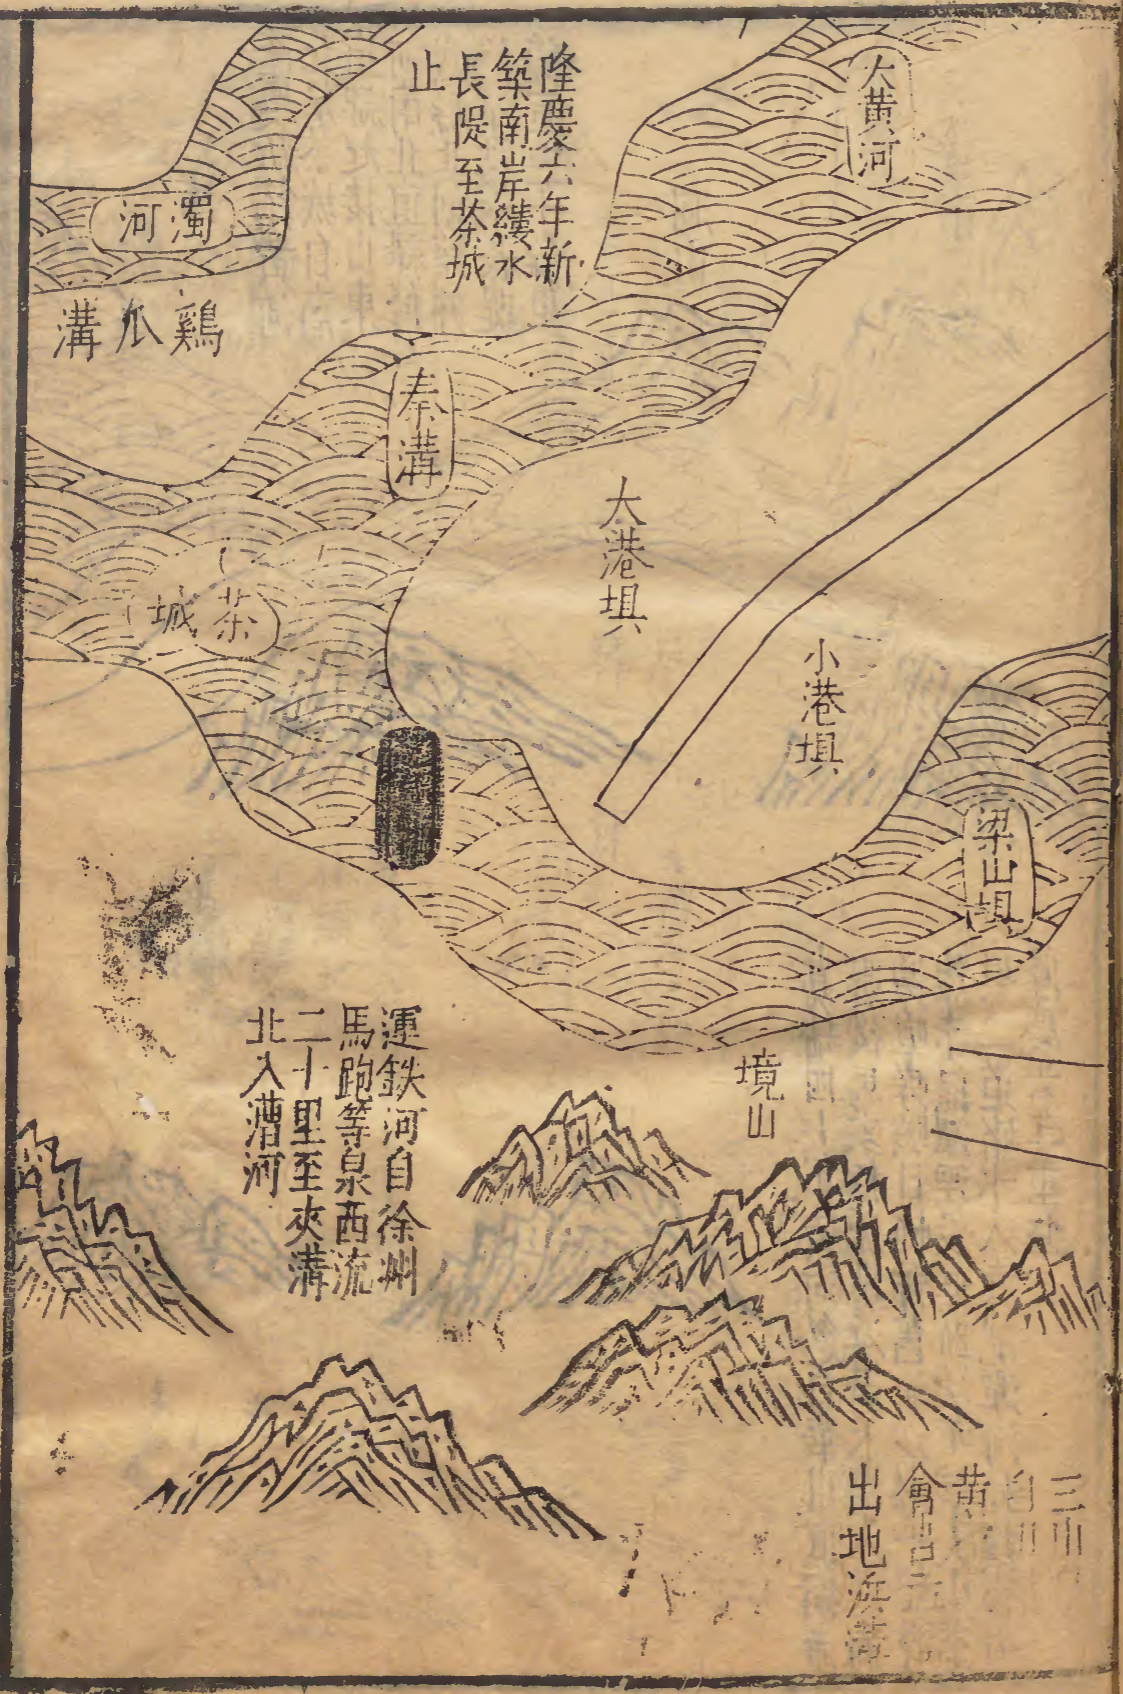 大黃河
隆慶六年新
築南岸縷水
長隄至茶城
止
濁河
鷄爪溝
秦溝
大港垻
茶城
小港垻
梁山垻
境山
運鉄河自徐州
馬跑等泉西流
二十里至夾溝
北入漕河
三
黃
會
出地浜溝